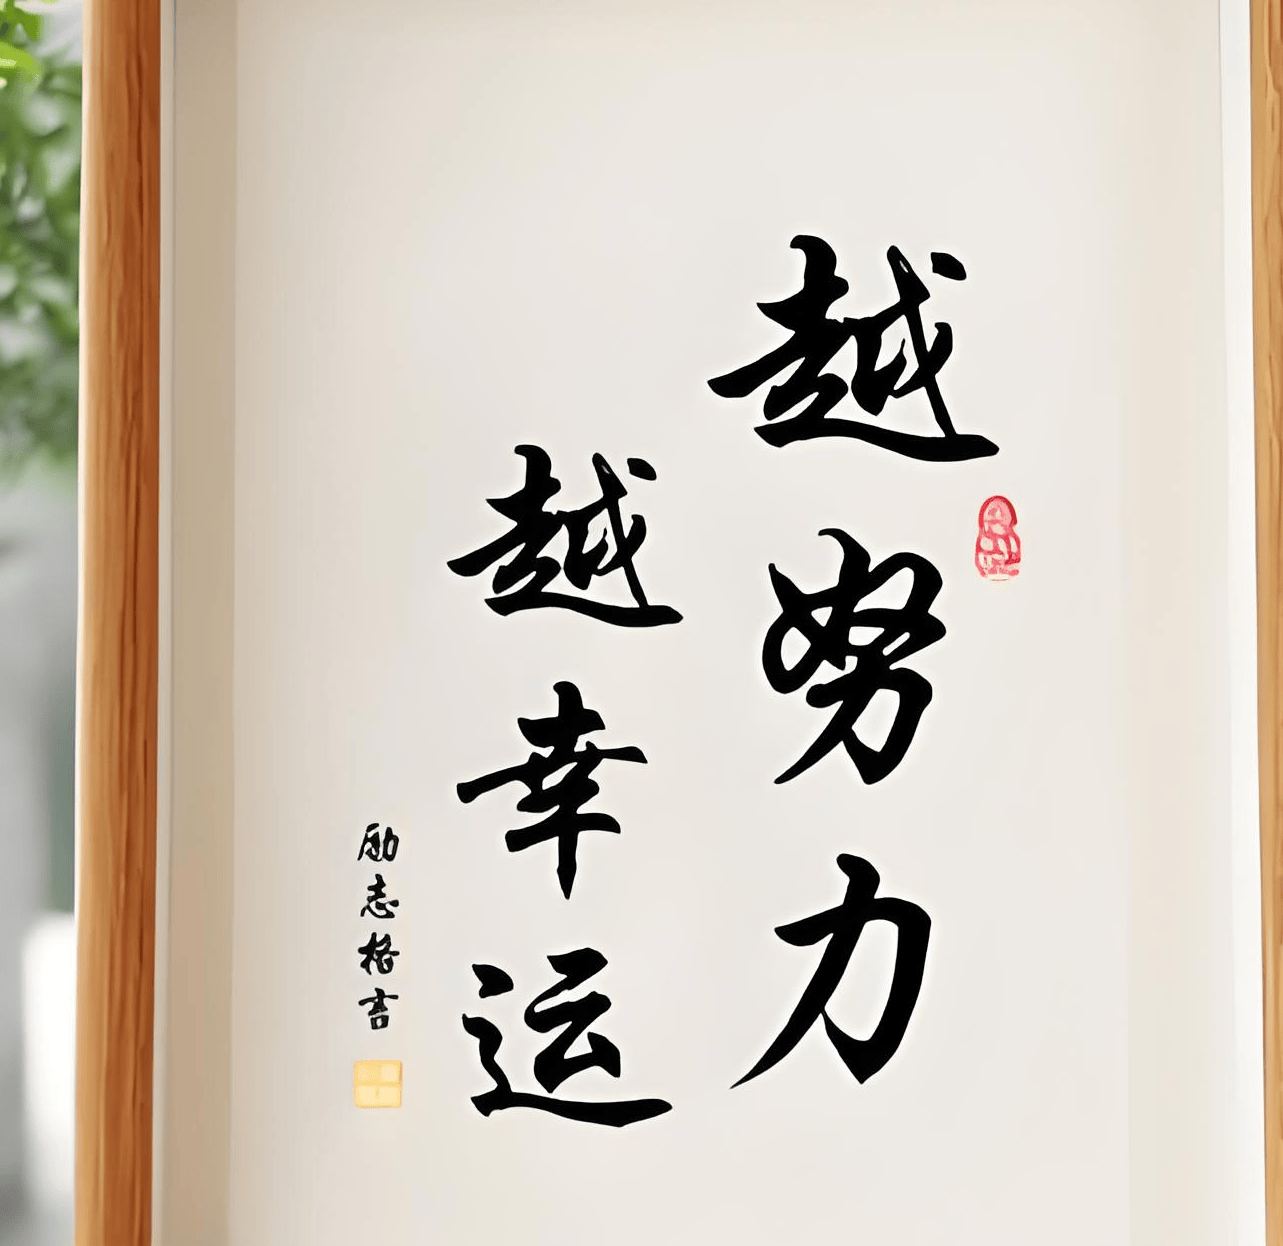 越努力
越幸运
励志格言